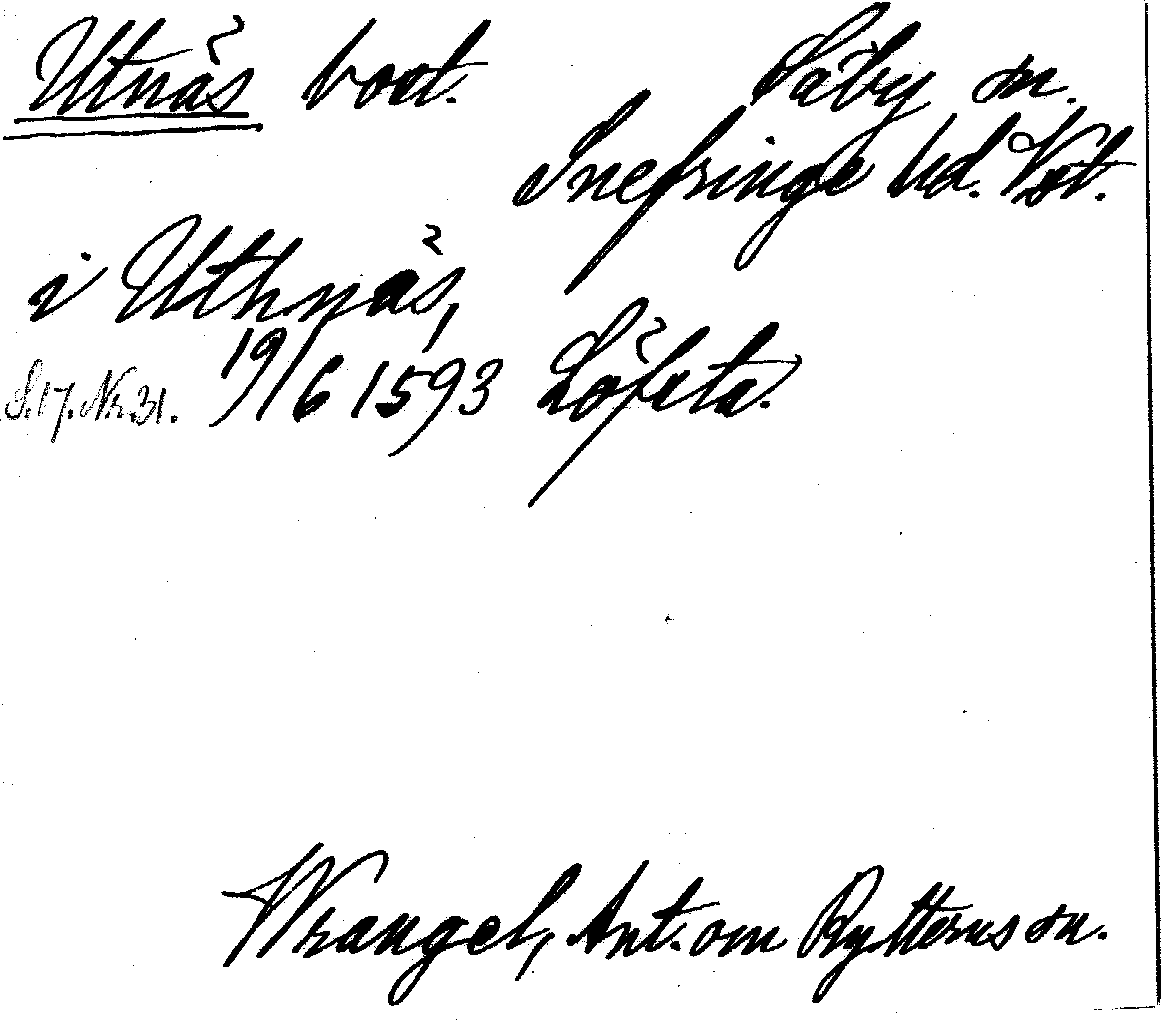 Utnäs bost. Säby sn.
Snefringe hd. Vstl.
i Uthnäs,
S.17. Nr.31. 19/6 1593 Löfsta.
Wrangel, Ant. om Rytterns sn.